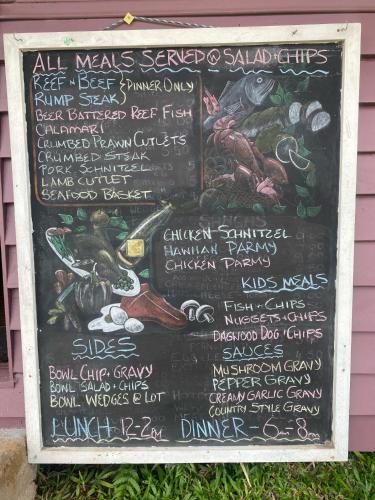 ALL MEALS SERVED @ SALAD + CHIPS
REEF N BEEF } DINNER ONLY
RUMP STEAK
BEER BATTERED REEF FISH
CALAMARI
CRUMBED PRAWN CUTLETS
CRUMBED STEAK
PORK SCHNITZEL
LAMB CUTLET
SEAFOOD BASKET
CHICKEN SCHNITZEL
HAWIIAN PARMY
CHICKEN PARMY
KIDS MEALS
FISH + CHIPS
NUGGETS + CHIPS
DAGWOOD DOG + CHIPS
SIDES
BOWL CHIP + GRAVY
BOWL SALAD + CHIPS
BOWL WEDGES @ LOT
SAUCES
MUSHROOM GRAVY
PEPPER GRAVY
CREAMY GARLIC GRAVY
COUNTRY STYLE GRAVY
LUNCH 12-2PM DINNER - 6PM-8PM